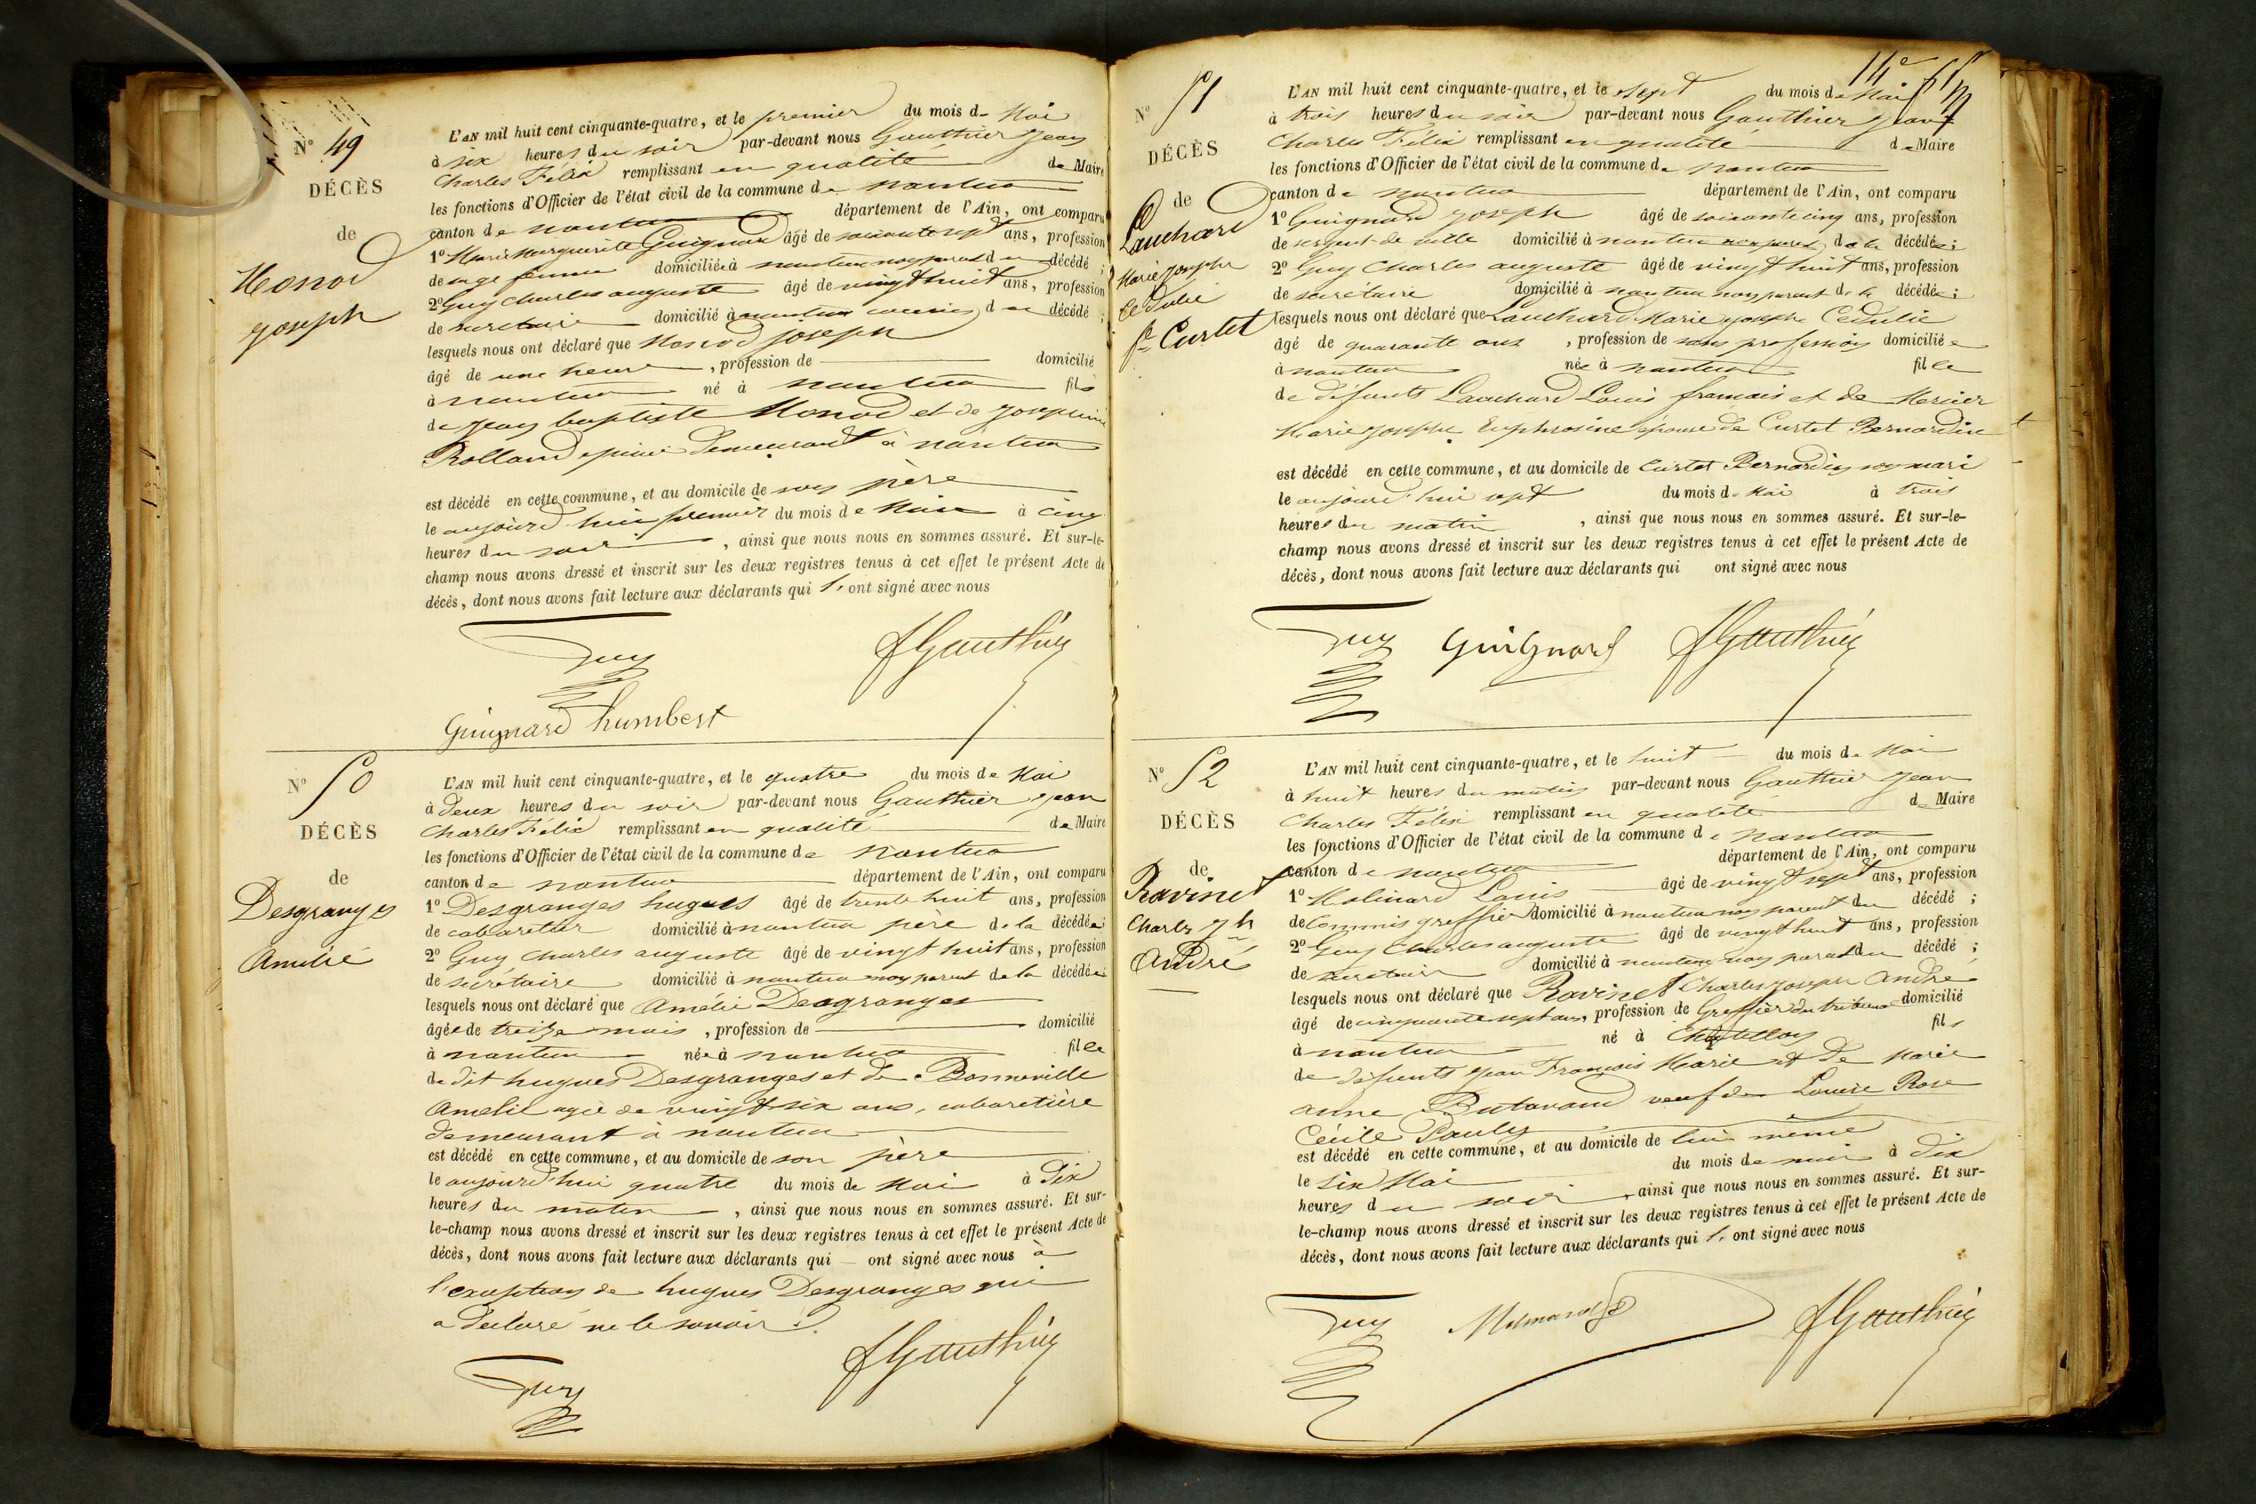 Nº 49
DÉCÈS
de
Monod
Joseph
L'AN mil huit cent cinquante-quatre, et le premier du mois de Mai
à six heures du soir par-devant nous Gauthier Jean
Charles Félix remplissant en qualité de Maire
les fonctions d'Officier de l'état civil de la commune de nantua
canton de nantua département de l'Ain, ont comparu
1º Marie Marguerite Guignard âgé de soixante sept ans, profession
de sage femme domiciliée à nantua non parent du décédé ;
2º Guy Charles auguste âgé de vingt huit ans, profession
de secrétaire domicilié à nantua du décédé ;
lesquels nous ont déclaré que Monod Joseph
âgé de une heure , profession de domicilié
à nantua né à nantua fils
de Jean baptiste Monod et de Josephine
Rolland demeurant à nantua
est décédé en cette commune, et au domicile de son père
le aujourd'hui premier du mois de Mai à cinq
heures du soir , ainsi que nous nous en sommes assuré. Et sur-le-
champ nous avons dressé et inscrit sur les deux registres tenus à cet effet le présent Acte de
décès, dont nous avons fait lecture aux déclarants qui l'ont signé avec nous
Guy fGauthier
Guignard humbert
Nº 50
DÉCÈS
de
Desgranges
Amélie
L'AN mil huit cent cinquante-quatre, et le quatre du mois de Mai
à deux heures du soir par-devant nous Gauthier Jean
Charles Félix remplissant en qualité de Maire
les fonctions d'Officier de l'état civil de la commune de nantua
canton de nantua département de l'Ain, ont comparu
1º Desgranges hugues âgé de trente huit ans, profession
de cabaretier domicilié à nantua père de la décédée ;
2º Guy Charles auguste âgé de vingt huit ans, profession
de secrétaire domicilié à nantua non parent de la décédée ;
lesquels nous ont déclaré que Amélie Desgranges
âgée de treize mois , profession de domicilié
à nantua née à nantua fille
de dit hugues Desgranges et de Bonneville
Amélie agée de vingt six ans, cabaretière
demeurant à nantua
est décédé en cette commune, et au domicile de son père
le aujourd'hui quatre du mois de Mai à dix
heures du matin , ainsi que nous nous en sommes assuré. Et sur-
le-champ nous avons dressé et inscrit sur les deux registres tenus à cet effet le présent Acte de
décès, dont nous avons fait lecture aux déclarants qui — ont signé avec nous à
l'exception de hugues Desgranges qui
a déclaré ne le savoir
fGauthier
Guy
14e
Nº 51
DÉCÈS
de
Lauchard
Marie Josephe
Cédulie
fe Curtet
L'AN mil huit cent cinquante-quatre, et le sept du mois de Mai
à trois heures du soir par-devant nous Gauthier Jean
Charles Félix remplissant en qualité de Maire
les fonctions d'Officier de l'état civil de la commune de nantua
canton de nantua département de l'Ain, ont comparu
1º Guignard Joseph âgé de soixante cinq ans, profession
de sergent de ville domicilié à nantua non parent de la décédée ;
2º Guy Charles auguste âgé de vingt huit ans, profession
de secrétaire domicilié à nantua non parent de la décédée ;
lesquels nous ont déclaré que Lauchard Marie Josephe Cédulie
âgé de quarante ans , profession de sans profession domiciliée
à nantua née à nantua fille
de défunts Lauchard Louis francois et de Mercier
Marie Josephe Euphrosine épouse de Curtet Bernardin
est décédé en cette commune, et au domicile de Curtet Bernardin son mari
le aujourd'hui sept du mois de Mai à trois
heures du matin , ainsi que nous nous en sommes assuré. Et sur-le-
champ nous avons dressé et inscrit sur les deux registres tenus à cet effet le présent Acte de
décès, dont nous avons fait lecture aux déclarants qui ont signé avec nous
Guy Guignard fGauthier
Nº 52
DÉCÈS
de
Ravinet
Charles Jh
André
L'AN mil huit cent cinquante-quatre, et le huit du mois de Mai
à huit heures du matin par-devant nous Gauthier Jean
Charles Félix remplissant en qualité de Maire
les fonctions d'Officier de l'état civil de la commune de nantua
canton de nantua département de l'Ain, ont comparu
1º Molinard Louis âgé de vingt sept ans, profession
de Commis greffier domicilié à nantua non parent du décédé ;
2º Guy Charles auguste âgé de vingt huit ans, profession
de secrétaire domicilié à nantua non parent du décédé ;
lesquels nous ont déclaré que Ravinet Charles Joseph André
âgé de cinquante sept ans, profession de Greffier du tribunal domicilié
à nantua né à Chatillon fils
de défunts Jean François Marie et de Marie
anne Butavand veuf de Louise Rose
Cécile Pauly
est décédé en cette commune, et au domicile de lui même
le six Mai du mois de mai à dix
heures du soir , ainsi que nous nous en sommes assuré. Et sur-
le-champ nous avons dressé et inscrit sur les deux registres tenus à cet effet le présent Acte de
décès, dont nous avons fait lecture aux déclarants qui l'ont signé avec nous
Guy Molinard fGauthier